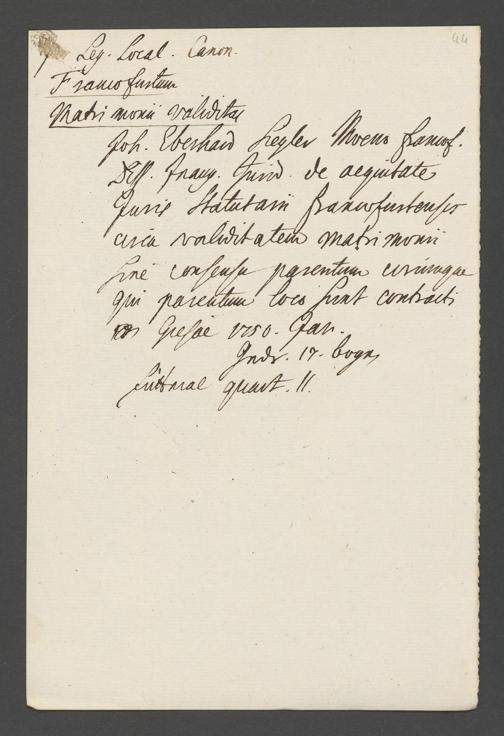 44
Leg. Local. Canon.
Francofurtum
Matrimonii validitas
Joh. Eberhard Siegler Moeno francof.
Diss. Inaug. Jurid. de aequitate
Juris Statutarii francofurtensis
circa validitatem matrimonii
sine consensu parentum eorumque
qui parentum loco sunt contracti
Giessae 1750. Jan.
17. bogn
quart. 11.